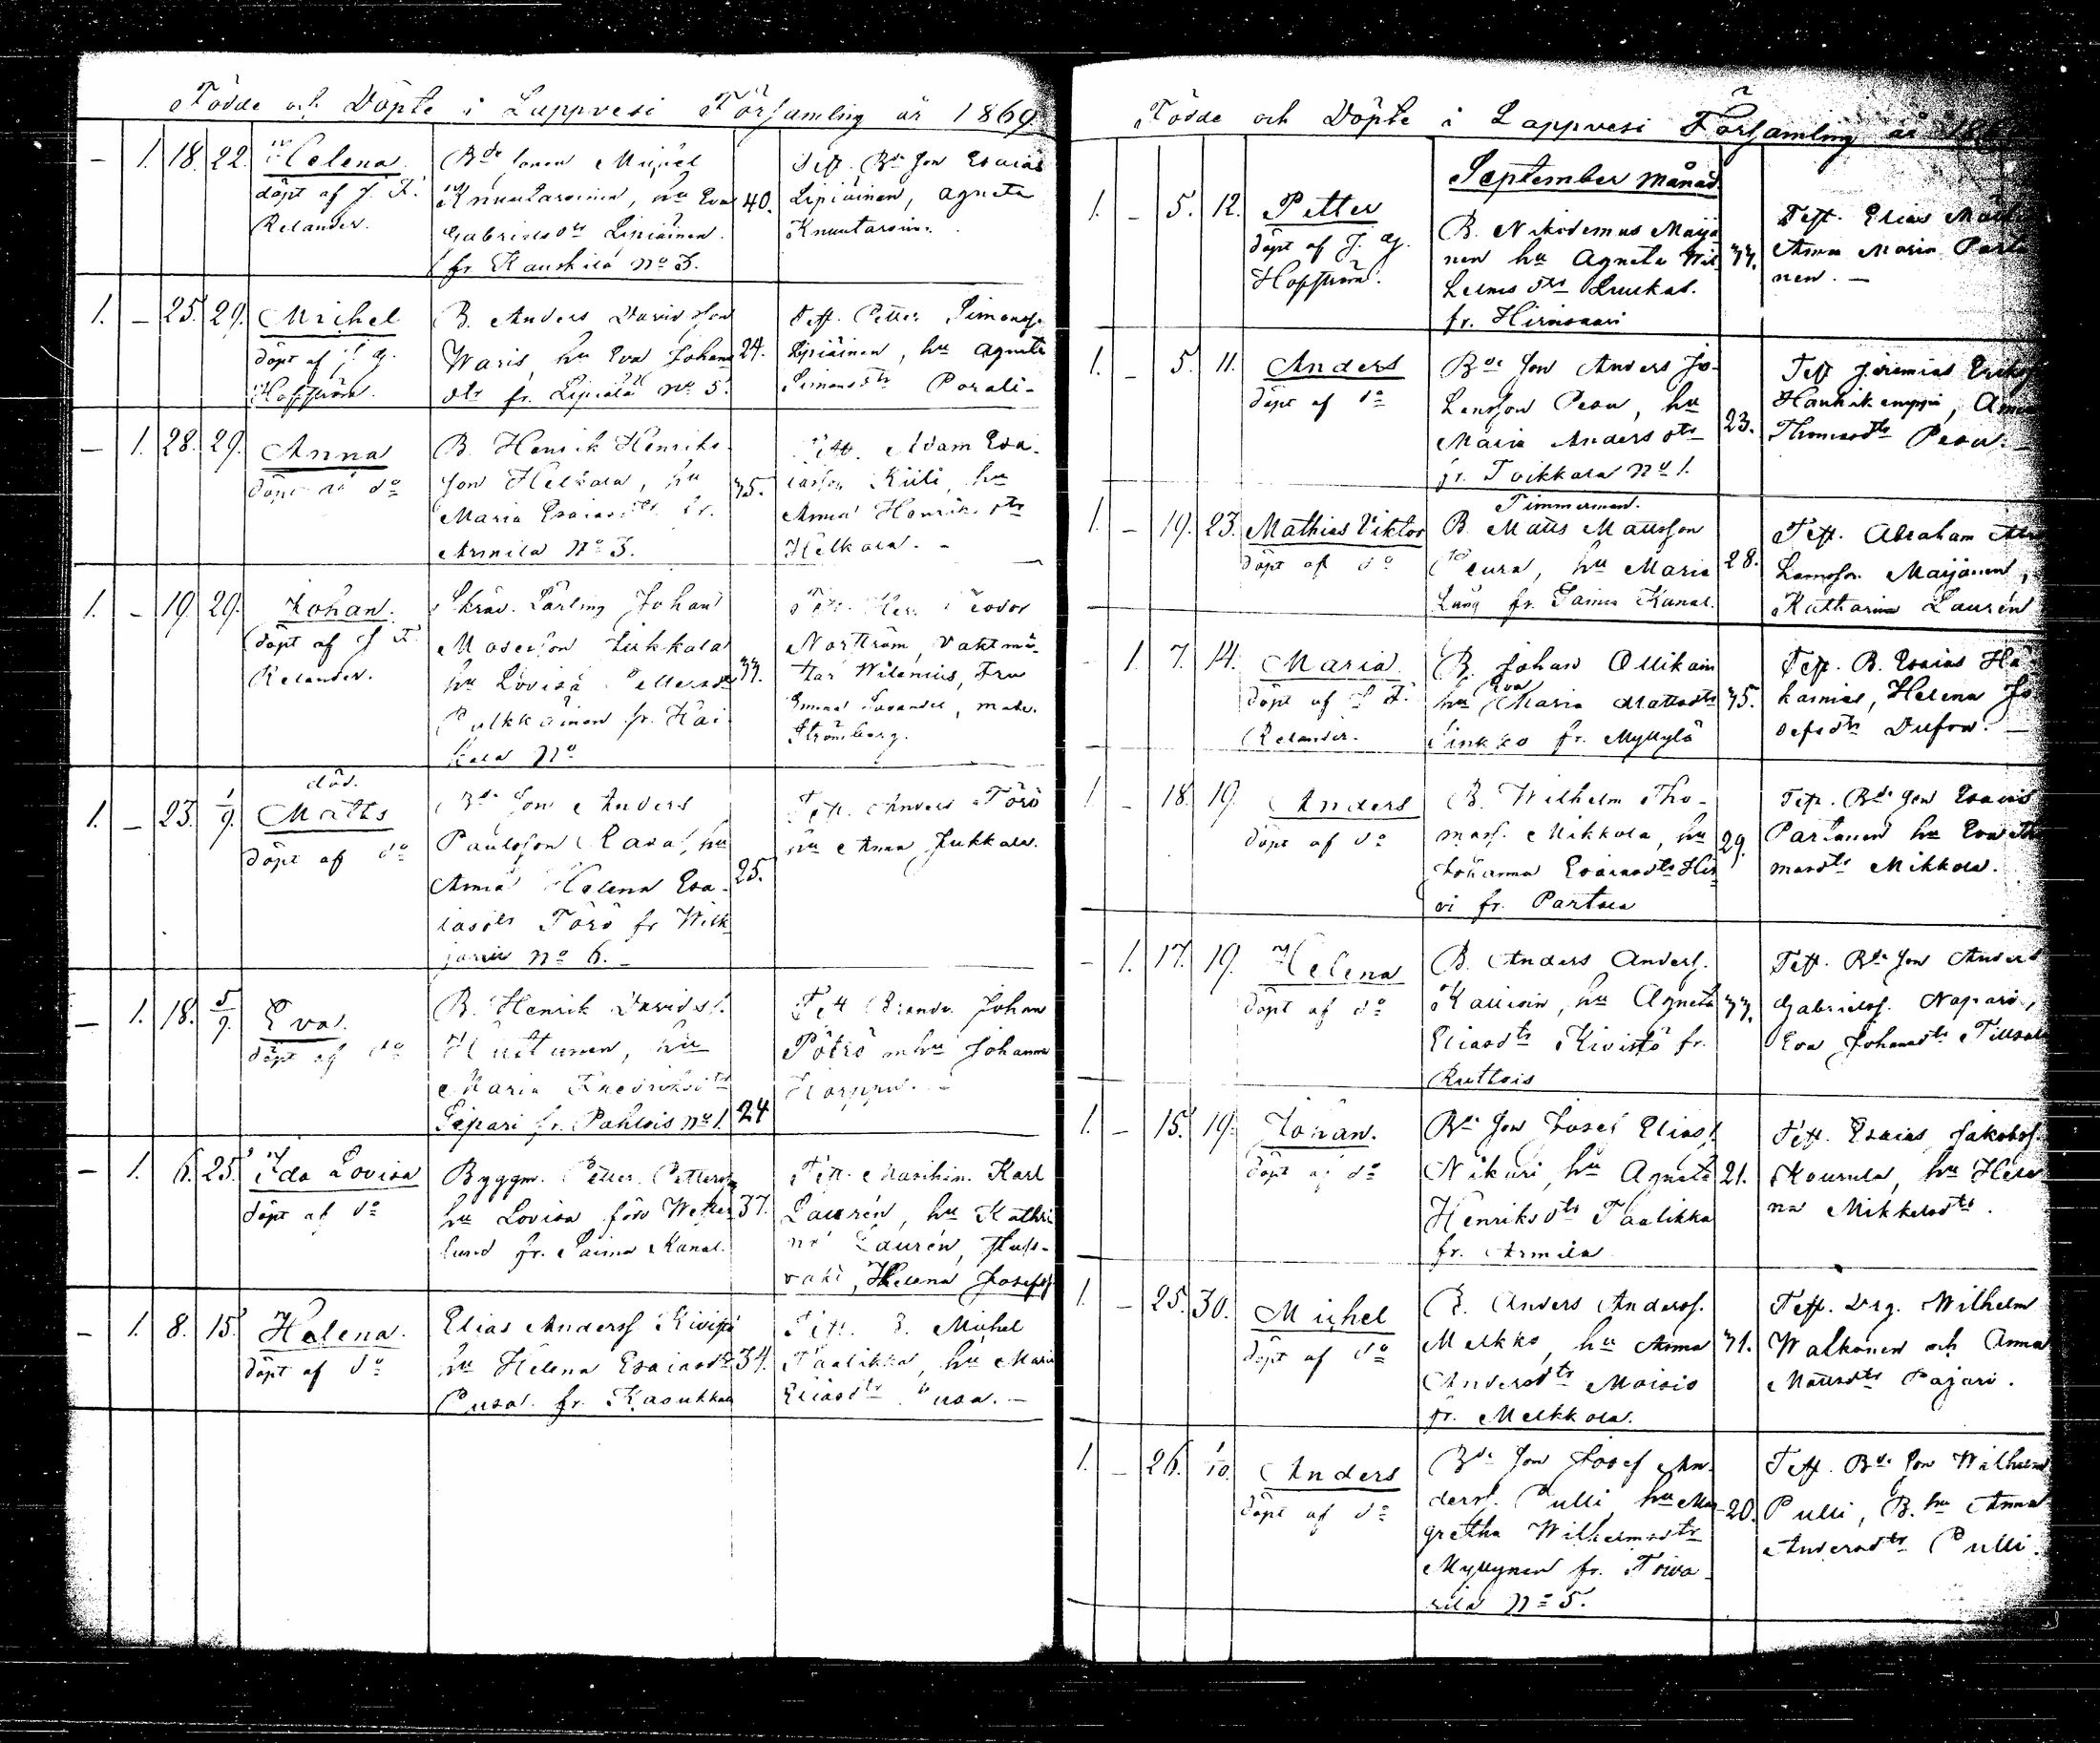 Födde och Döpte i Lappvesi Församling år 1869
– 1. 18. 22. Helena.
döpt af J. F.
Relander.
Bde sonen Michel
Knuutarinen, hu Eva
Gabrielsdtr Lipiäinen.
fr. Kauskila No 3.
40.
Test. Bde son Esaias
Lipiäinen, Agneta
1. – 25. 29. Michel
döpt af J. G.
Hoffström.
B. Anders Davidson
Waris, hu Eva Johans
dtr fr. Lipiälä No 5.
24.
Test. Petter Simonss.
Lipiäinen, hu Agneta
Simonsdtr
– 1. 28. 29. Anna
döpt af do
B. Henrik Henriks
son Helkala, hu
Maria Esaiasdtr fr.
Armila No 3.
35.
Test. Adam Esa-
iasson Kiili, hu
Anna Henriksdtr
Helkala. –
1. – 19. 29. Johan.
döpt af J. F.
Relander.
Skräd. Lärling Johan
Mosesson Jukkala
hu Lovisa Pettersdtr
Pulkkainen fr. Kai
No
33.
Norström, Vaktmä-
star Wilenius, Fru
Strömberg.
död.
1. – 23. 1/9. Matts
döpt af do
Bde son Anders
Paulsson Rasa, hu
Anna Helena Esa-
iasdtr Törö fr Wilk
järvi No 6. –
25.
Test. Anders Törö
hu Anna Jukkala.
– 1. 18. 5/9. Eva.
döpt af do
B. Henrik Davids.
Huttunen, hu
Maria Fredriksdtr
fr. Pahlois No 1.
24
Test Bonde Johan
Pötrö m hu Johanna
Korppu. –
– 1. 6. 25. Ida Lovisa
döpt af do
Byggm. Petter Petterson
hu Lovisa född Wetter
lund fr. Saima Kanal.
37.
Test. Maschin. Karl
Laurén, hu Kathri
na Laurén, Sluss-
vakt, Helena Josefs
– 1. 8. 15. Helena.
döpt af do
Elias Anderss Kivistö
hu Helena Esaiasdtr
Pusa. fr. Kasukkala
34.
Test. B. Michel
Taalikka, hu Maria
Eliasdtr Pusa. –
Födde och Döpte i Lappvesi Församling år
September Månad
1. – 5. 12. Petter
döpt af J. G.
Hoffström.
B. Nikodemus Maijä
nen hu Agneta Wil
helmsdtr Luukas.
fr. Hirvisaari
33.
Test. Elias
Anna Maria Parta
nen. –
1. – 5. 11. Anders
döpt af do
Bde son Anders Jo-
hansson Pesu, hu
Maria Andersdtr
fr. Toikkala No 1.
23.
Test Jeremias Eriks
Thomasdtr Pesu. –
1. – 19. 23. Mathias Viktor
döpt af do
Timmerman.
B. Matts Mattsson
Peura, hu Maria
Lang fr. Saima Kanal.
28.
Test. Abraham Abra
hamsson Maijanen,
Katharina Laurén
– 1. 7. 14. Maria.
döpt af J. F.
Relander.
B. Johan Ollikain
hu Eva Maria Mattsdtr
Sinkko fr. Myllylä
35.
Test. B. Esaias Hä-
kamies, Helena Jo
sefsdtr Dufva. –
1. – 18. 19. Anders
döpt af do
B. Wilhelm Tho-
mass. Mikkola, hu
Johanna Esaiasdtr Hir
vi fr. Partala
29.
Test. Bde son Esaias
Partanen hu Eva Tho
masdtr Mikkola.
– 1. 17. 19. Helena
döpt af do
B. Anders Anderss.
Kausoin, hu Agneta
Eliasdtr Kivistö fr.
Ruttois
33.
Test. Bde son Anders
Gabrielss. Napari,
Eva Johansdtr
1. – 15. 19. Johan.
döpt af do
Bde son Josef Elias.
Nikuri, hu Agneta
Henriksdtr Taalikka
fr. Armila
21.
Test. Esaias Jakobss.
Kourula, hu Hele
na Mikkelsdtr.
1. – 25. 30. Michel
döpt af do
B. Anders Anderss.
Melkko, hu Anna
Andersdtr Moisio
fr. Melkkola.
31.
Test. Drg. Wilhelm
Walkonen och Anna
Mattsdtr Pajari.
1. – 26. 1/10. Anders
döpt af do
Bde son Josef An-
derss. Pulli, hu Mar
gretha Wilhelmsdtr
Myllynen fr. Toiva
rila No 5.
20.
Test. Bde son Wilhelm
Pulli, B. hu Anna
Andersdtr Pulli.